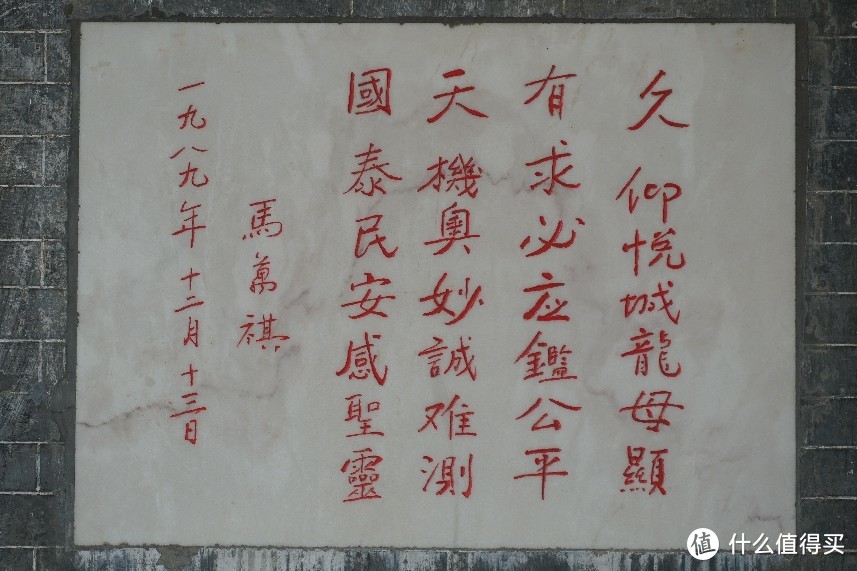 久仰悦城龍母顯
有求必应鑑公平
天機奥妙誠难測
國泰民安感聖靈
馬萬祺
一九八九年十二月十三日
值 什么值得买